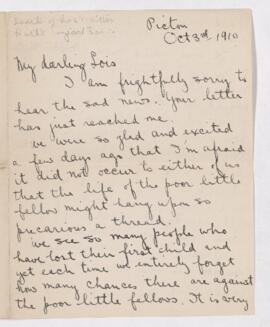 Picton
Oct 3rd 1910
My darling Lois
I am frightfully sorry to
hear the sad news. Your letter
has just reached me.
We were so glad and excited
a few days ago that I'm afraid
it did not occur to either of us
that the life of the poor little
fellow might hang upon so
precarious a thread.
We see so many people who
have lost their first child and
yet each time we entirely forget
how many chances there are against
the poor little fellows. It is very